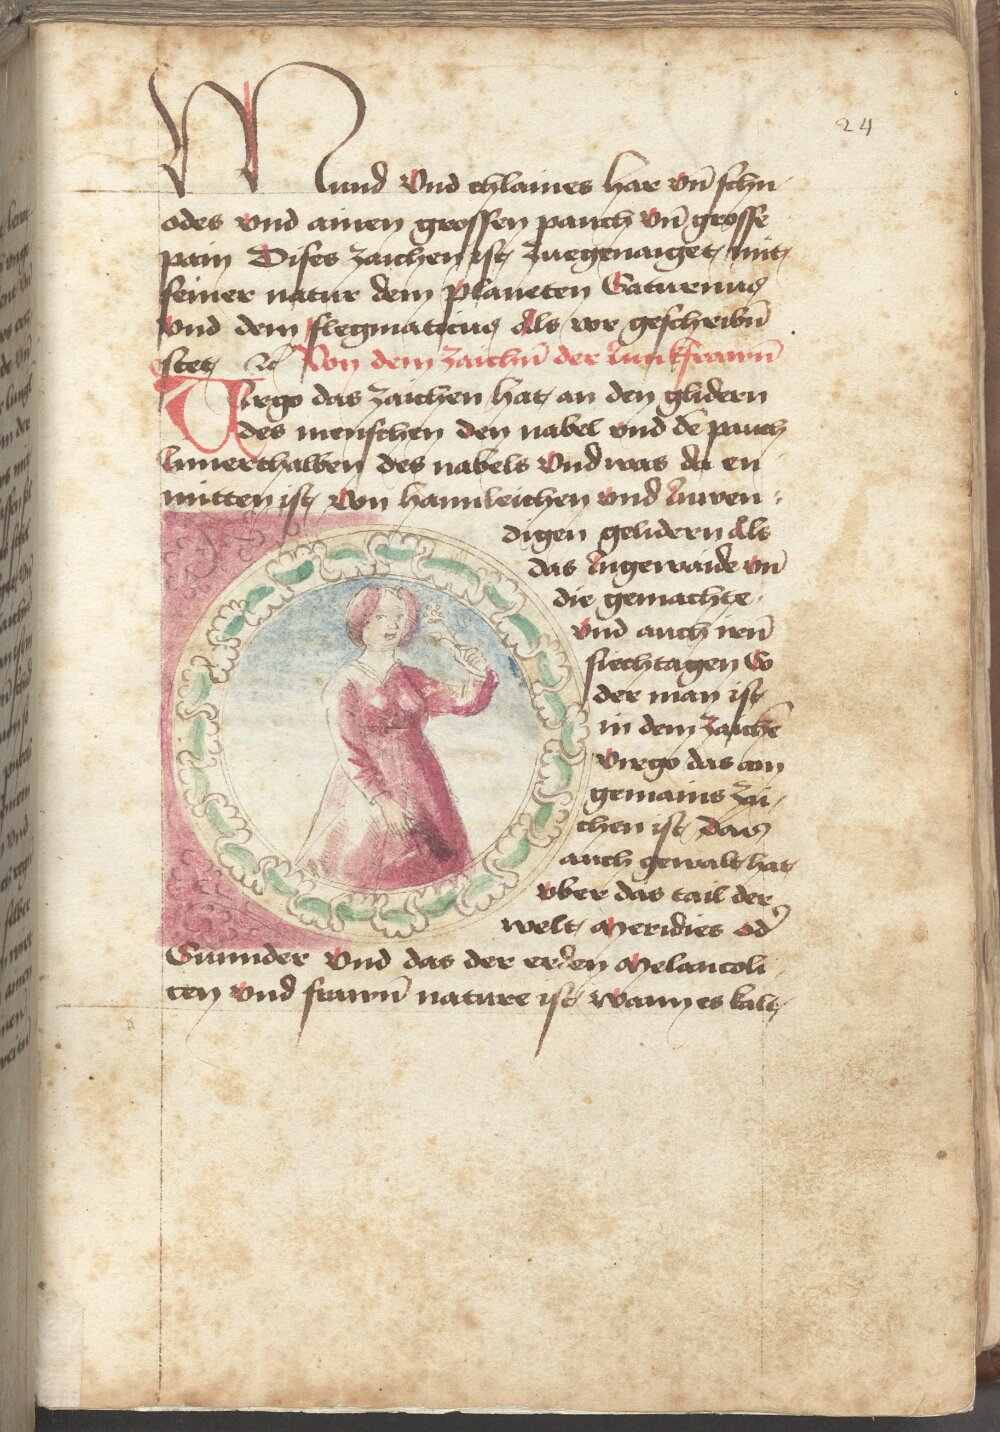 24
Mund vnd chlaines har vn̄ schn
odes vnd ainen grossen pauch vn̄ grosse
pain Dises zaichen ist zuegenaiget mit
seiner natur dem planeten Saturnus
vnd dem flegmaticus Als vor geschribn̄
stet Von dem zaichn̄ der Junkfrawn̄
Virgo das zaichen hat an den glidern
des menschen den nabel vnd dē pauch
Innerthalben des nabels vnd was da en
mitten ist von haimleichen vnd Inwen
digen gelidern Als
das Ingewaide vn̄
die gemächte
vnd auch iren̄
siechtagen So
der man ist
in dem zaichē
virgo das ain
gemains zai
chen ist das
auch gewalt hat
vber das tail der
welt Meridies od̄
Sunnder vnd das der erden Melancoli
cen vnd frawn̄ nature ist wann es kalt